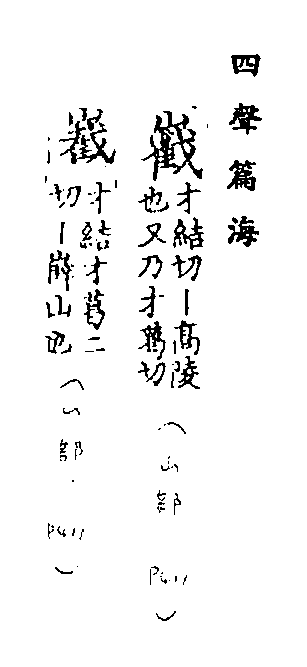 四聲篇海
才結切丨高陵
也又乃才切
(山部 P411)
才結才葛二
切丨嶭山也
(山部. P411)